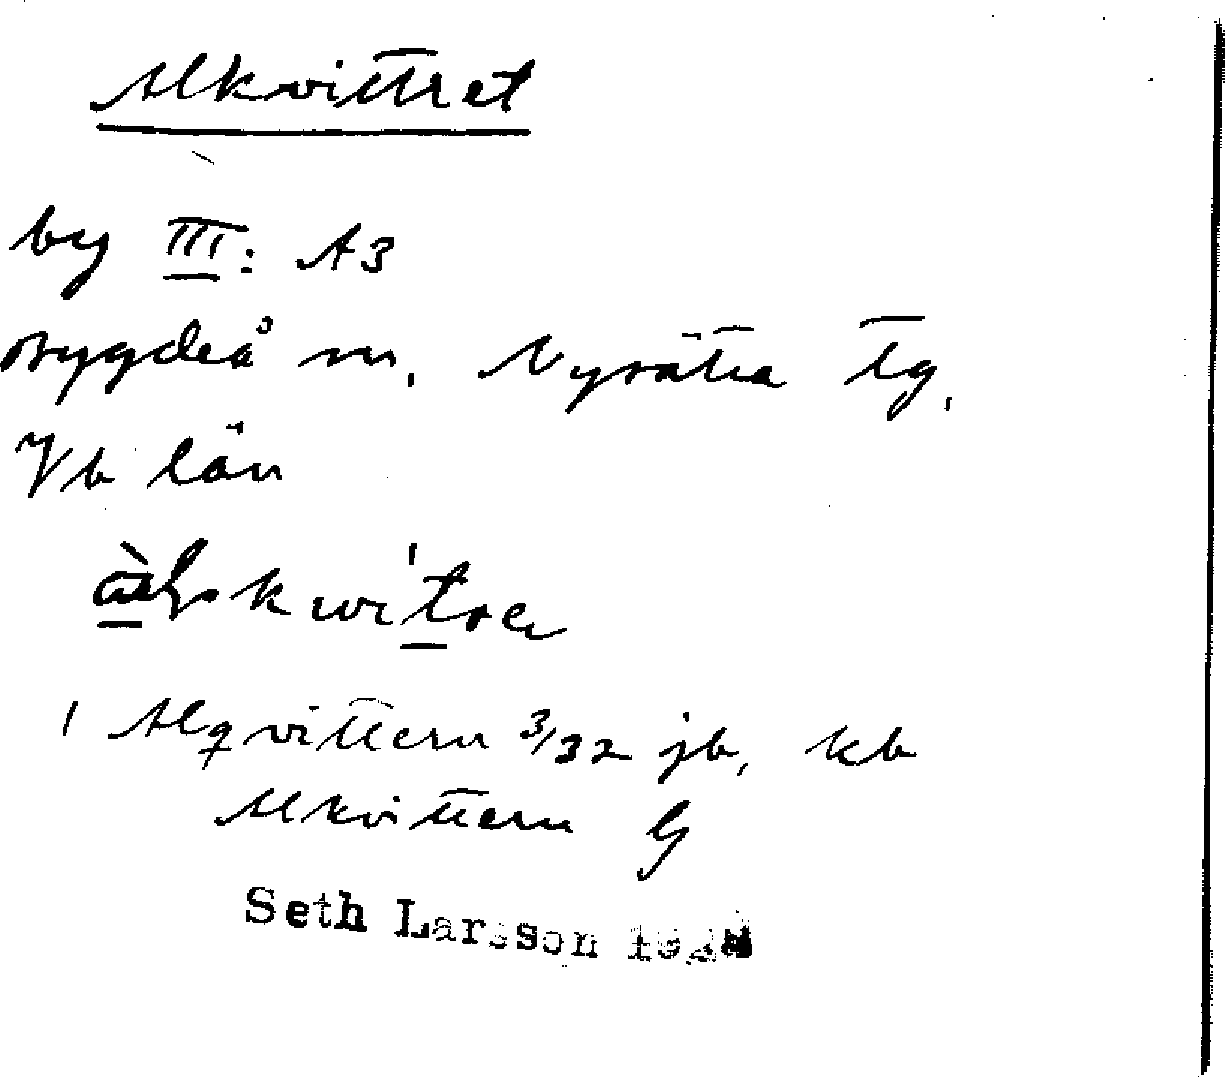 Alkvittret
by III: A3
Bygdeå sn. Nysätra tg.
Vb län
1 Alqvittern 3/32 jb, kb
Alkvittern G
Seth Larsson